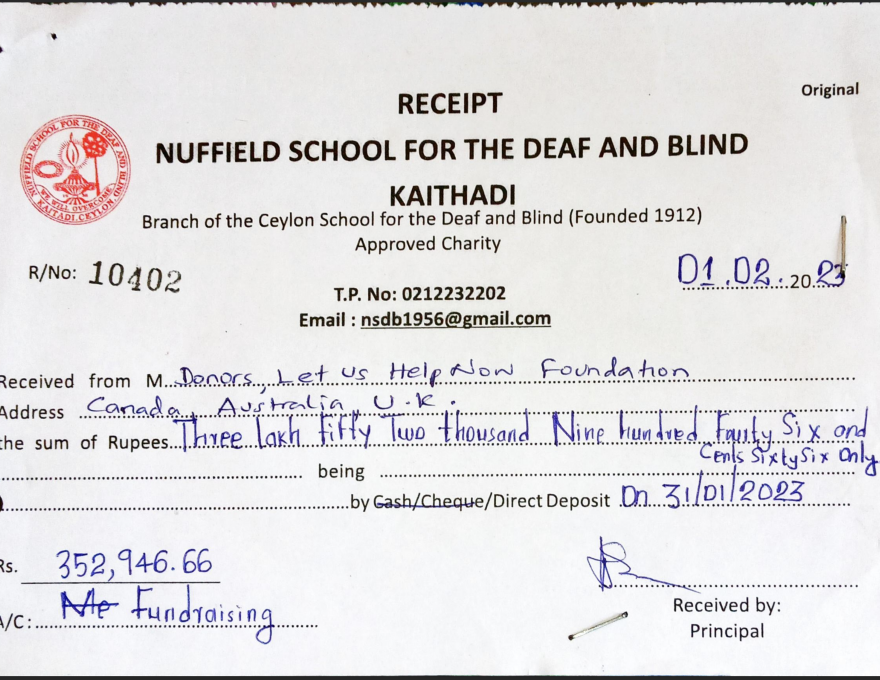 Original
RECEIPT
NUFFIELD SCHOOL FOR THE DEAF AND BLIND
KAITHADI
NUFFIELD SCHOOL FOR THE DEAF AND BLIND
WE WILL OVERCOME
KAITADI, CEYLON.
Branch of the Ceylon School for the Deaf and Blind (Founded 1912)
Approved Charity
R/No: 10402
01.02.2023
T.P. No: 0212232202
Email : nsdb1956@gmail.com
Received from M Donors, Let us Help Now Foundation
Address Canada, Australia, U.K.
the sum of Rupees Three lakh fifty Two thousand Nine hundred Fourty Six and
Cents Sixty Six Only
being
by Cash/Cheque/Direct Deposit On 31/01/2023
Rs. 352,946.66
A/C: Fundraising
Received by:
Principal